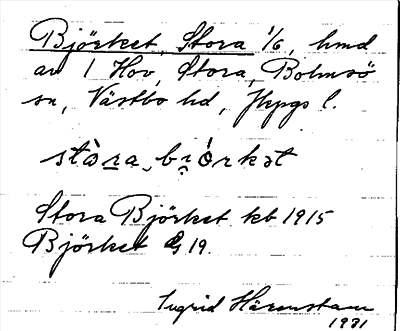 Björket, Stora 1/6, hmd
av 1 Hov, Stora, Bolmsö
sn, Västbo hd, Jkpgs l.
stòra_brórkət
Stora Björket kb 1915
Björket 19.
Ingrid Härenstam
1931